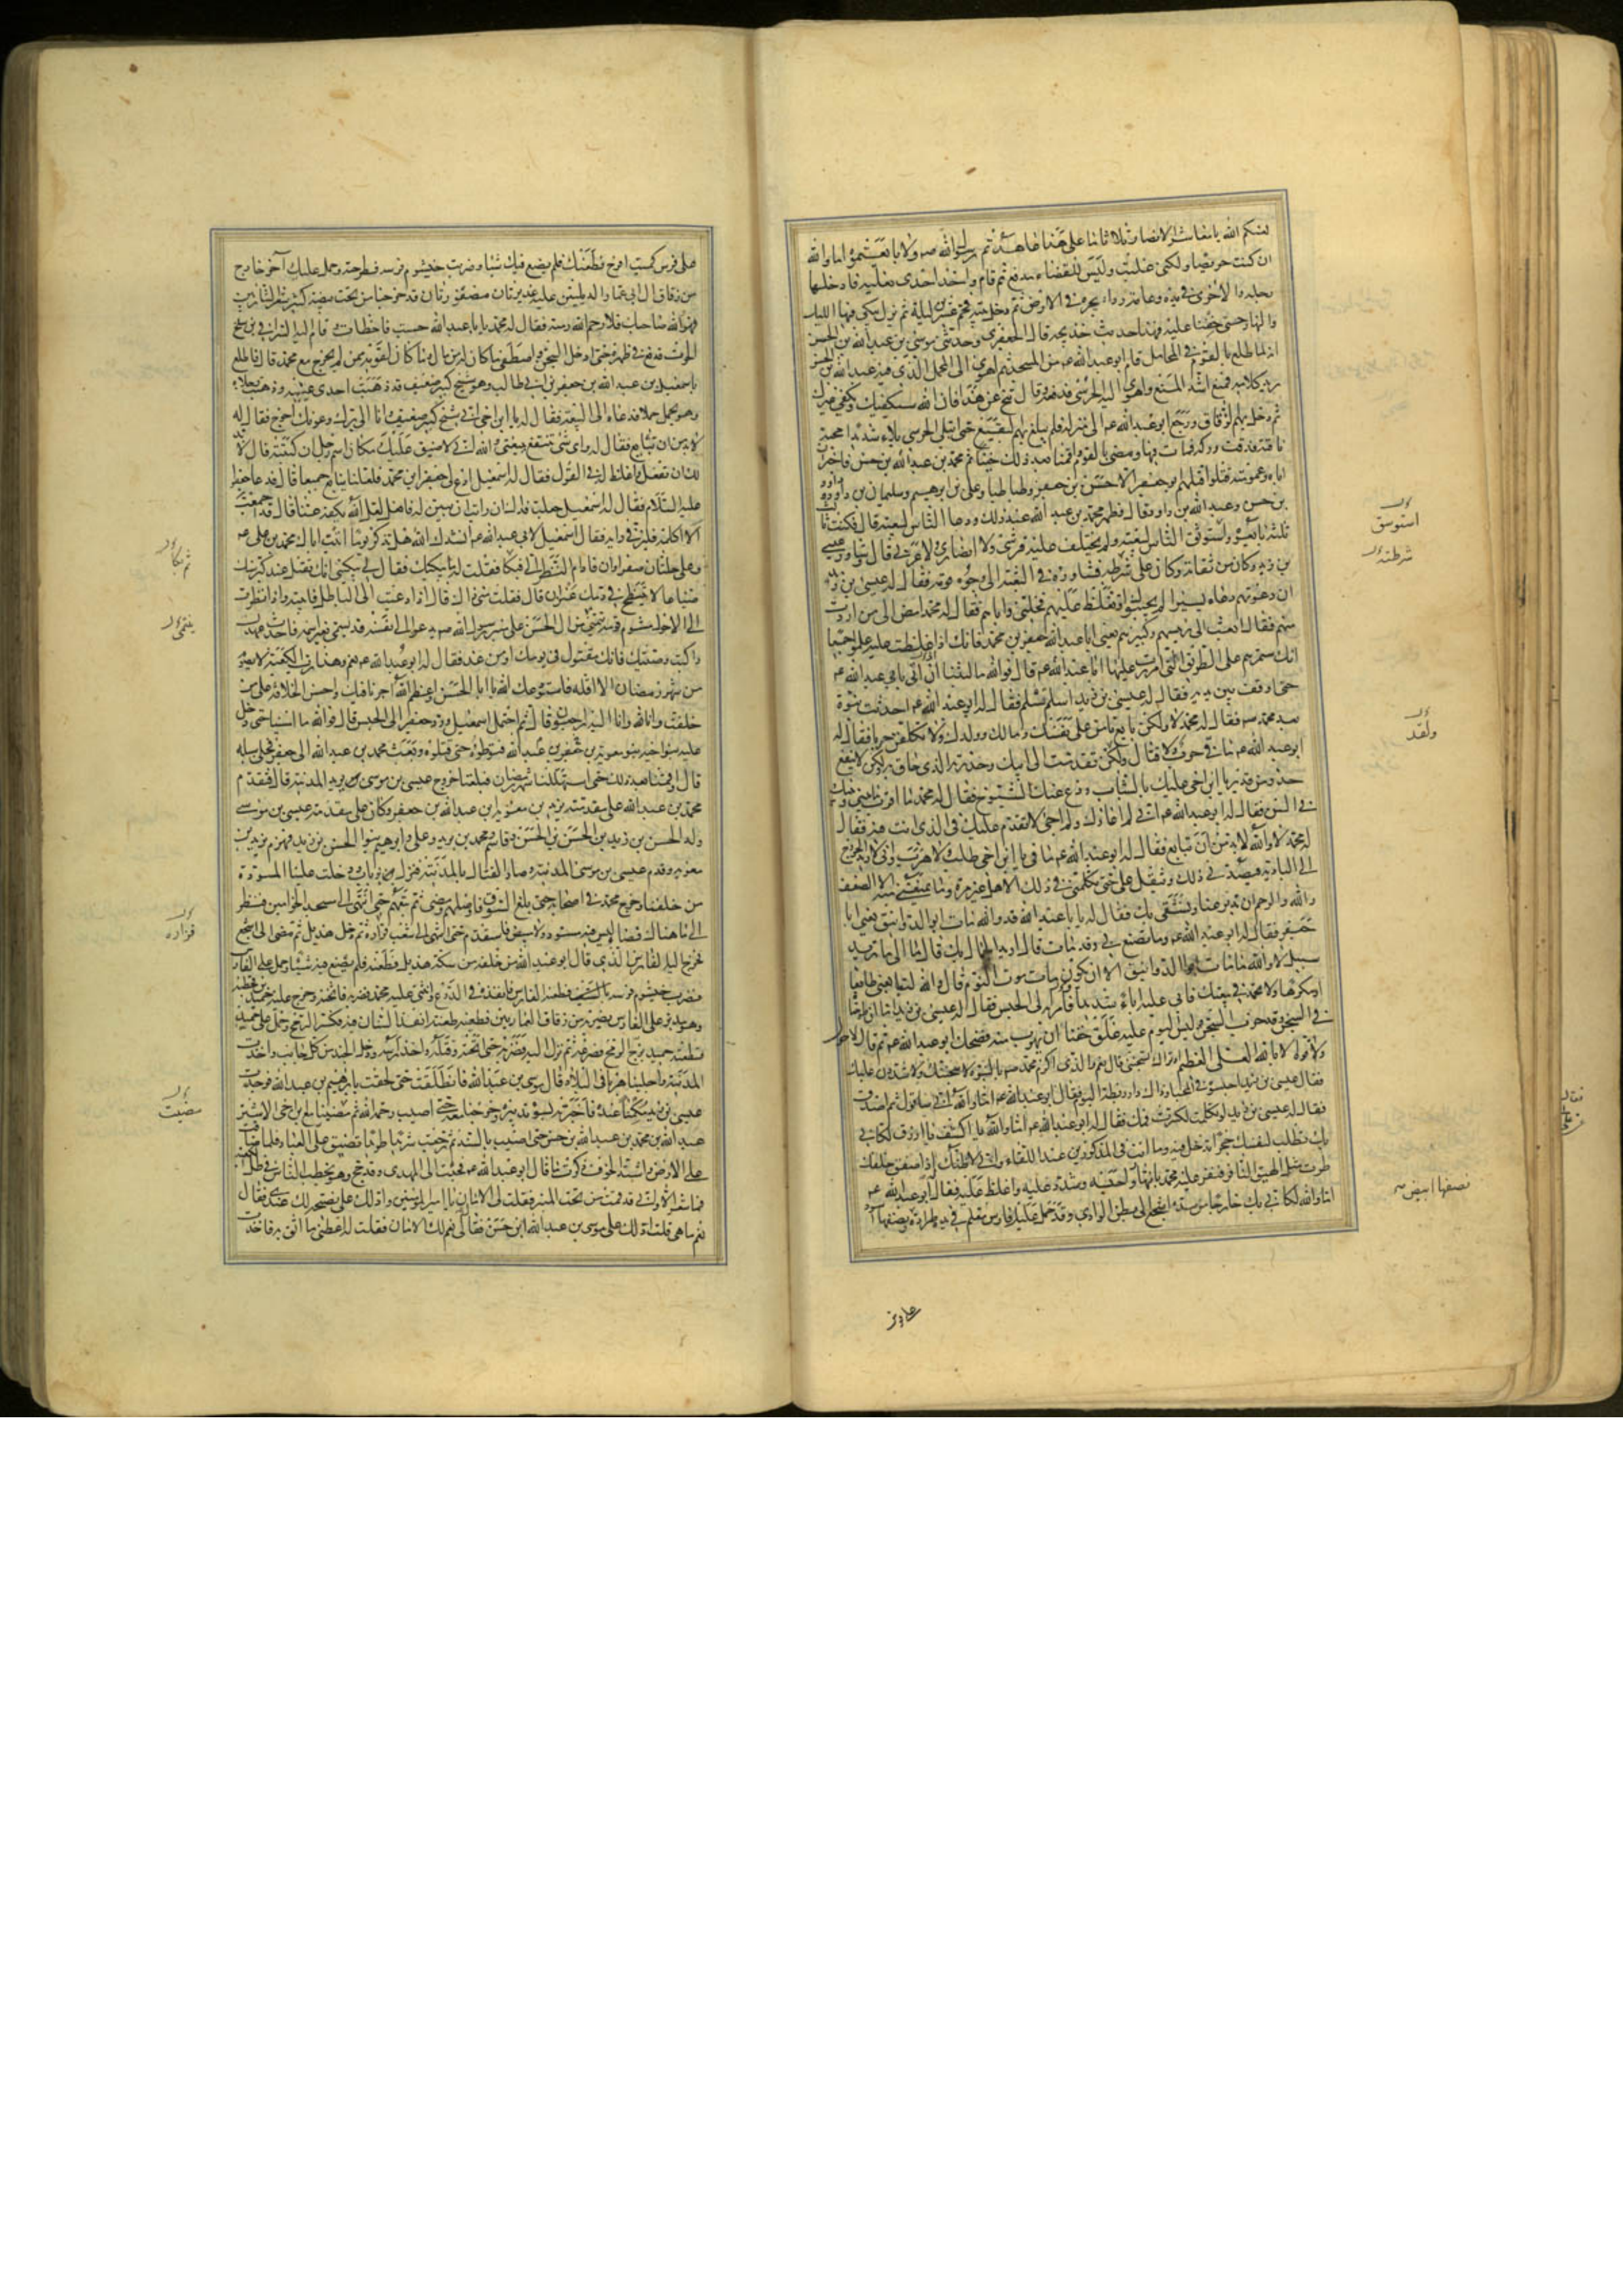 لعنكم الله يا معاشر الانصار ثلاثا ما على هذا عاهدتم رسول الله صم ولا بايعتموه اما والله
ان كنت حريصا ولكنى غلبت وليس للقضاء مدفع ثم قام واخذ احدى نعليه فادخلها
رجله والاخرى فى يده وعامة ردائه يجره فى الارض ثم دخل بيته فحم عشرين ليلة ثم نزل يبكى فيها الليل
والنهار حتى خفنا عليه فهذا حديث خديجه قال الجعفرى وحدثنى موسى بن عبد الله بن الحسن
انه لما طلع بالقوم فى المحامل قام ابو عبد الله عم من المسجد ثم اهوى الى المحمل الذى فيه عبد الله بن الحسن
يريد كلامه فمنع اشد المنع واهوى اليه الحرسى فدفعه وقال تنح عن هذا فان الله سيكفيك ويكفى غيرك
ثم دخل بهم الزقاق ورجع ابو عبد الله عم الى منزله فلم يبلغ بهم البقيع حتى ابتلى الحرسى بلاء شديدا رمحته
ناقته فدقت وركه فمات فيها ومضى بالقوم فاقمنا بعد ذلك حينا ثم محمد بن عبد الله بن حسن فاخبر ان
اباه وعمومته قتلوا قتلهم ابو جعفر الا حسن بن جعفر وطباطبا وعلى بن ابراهيم وسليمان بن داود
بن حسن وعبد الله بن داود قال فظهر محمد بن عبد الله عند ذلك ودعا الناس لبيعته قال فكنت ثالث
ثلثة بايعوه واستوثق الناس لبيعته ولم يختلف عليه قرشى ولا انصارى ولا عربى قال وشاور عيسى
بن زيد وكان من ثقاته وكان على شرطه فشاوره فى البعثة الى وجوه قومه فقال له عيسى بن زيد
ان دعوتهم دعاء يسيرا لم يجيبوك او تغلظ عليهم فخلنى واياهم فقال له محمد امض الى من اردت
منهم فقال ابعث الى رئيسهم وكبيرهم يعنى ابا عبد الله جعفر بن محمد فانك اذا اغلظت عليه علموا جميعا
انك ستمرهم على الطريق التى امررت عليها ابا عبد الله عم قال فوالله ما لبثنا ان اتى بابى عبد الله عم
حتى اوقف بين يديه فقال له عيسى بن زيد اسلم تسلم فقال له ابو عبد الله عم احدثت نبوة
بعد محمد صم فقال له محمد لا ولكن بايع تامن على نفسك ومالك وولدك ولا تكلفن حربا فقال له
ابو عبد الله عم ما فى حرب ولا قتال ولكن تقدمت الى ابيك وحذرته الذى حاق به ولكن لا ينفع
حذر من قدر يا ابن اخى عليك بالشباب ودع عنك الشيوخ فقال له محمد ما اقرب ما بينى وبينك
فى السن فقال له ابو عبد الله عم انى لم اعازك ولم اجئ لاتقدم عليك فى الذى انت فيه فقال
له محمد لا والله لا بد من ان تبايع فقال له ابو عبد الله عم ما فى يا ابن اخى طلب ولا هرب وانى لاريد الخروج
الى البادية فيصدنى ذلك ويثقل على حتى تكلمنى فى ذلك الاهل غير مرة وما يمنعنى منه الا الضعف
والله والرحم ان تدبر عنا ونشقى بك فقال له يا ابا عبد الله قد والله مات ابو الدوانيق يعنى ابا
جعفر فقال له ابو عبد الله عم وما تصنع بى وقد مات قال اريد الجمال بك قال ما الى ما تريد
سبيل لا والله ما مات ابو الدوانيق الا ان يكون مات موت النوم قال والله لتبايعنى طايعا
او مكرها ولا تحمد فى بيعتك فابى عليه اباء شديدا فامر به الى الحبس فقال له عيسى بن زيد اما ان طرحناه
فى السجن وقد خرب السجن وليس اليوم عليه غلق خفنا ان يهرب منه فضحك ابو عبد الله عم ثم قال لا حول
ولا قوة الا بالله العلى العظيم او تراك تسجننى قال نعم والذى اكرم محمدا صم بالنبوة لاسجننك ولاشددن عليك
فقال عيسى بن زيد احبسوه فى المخبا وذاك دار ريطة اليوم فقال ابو عبد الله عم اما والله انى ساقول ثم اصدق
فقال له عيسى بن زيد لو تكلمت لكسرت فمك فقال له ابو عبد الله عم اما والله يا اكشف يا ازرق لكانى
بك تطلب لنفسك جحرا تدخل فيه وما انت فى المذكورين عند اللقاء وانى لاظنك اذا صفق خلفك
طرت مثل الهيق النافر فنفر عليه محمد بانتهار احبسه وشدد عليه واغلظ عليه فقال ابو عبد الله عم
اما والله لكانى بك خارجا من سدة اشجع الى بطن الوادى وقد حمل عليك فارس معلم فى يده طرادة نصفها
استوسق
شرطته
ولقد
نصفها ابيض
على فرس
على فرس كميت اقرح فطعنك فلم يصنع فيك شيئا وضربت خيشوم فرسه فطرحته وحمل عليك آخر خارج
من زقاق ال ابى عمار الدئليين عليه غديرتان مضفورتان قد خرجتا من تحت بيضته كثير شعر الشاربين
فهو والله صاحبك فلا رحم الله رمته فقال له محمد يا با عبد الله حسبت فاخطات وقام اليه السراقى بن سلخ
الحوت فدفع فى ظهره حتى ادخل السجن واصطفى ما كان له من مال وما كان لقومه ممن لم يخرج مع محمد قال فاطلع
باسمعيل بن عبد الله بن جعفر بن ابى طالب وهو شيخ كبير ضعيف قد ذهبت احدى عينيه وذهبت رجلاه
وهو يحمل حملا فدعاه الى البيعة فقال له يا ابن اخى انى شيخ كبير ضعيف وانا الى برك وعونك احوج فقال له
لا بد من ان تبايع فقال له واى شئ تنتفع ببيعتى والله انى لاضيق عليك مكان اسم رجل ان كتبته قال لا بد
لك ان تفعل واغلظ له فى القول فقال له اسمعيل ادع لى جعفر بن محمد فلعلنا نبايع جميعا قال فدعا جعفرا
عليه السلام فقال له اسمعيل جعلت فداك ان رايت ان تبين له فافعل لعل الله يكفه عنا قال قد اجمعت
الا اكلمه فلير فى رايه فقال اسمعيل لابى عبد الله عم انشدك الله هل تذكر يوما اتيت اباك محمد بن على عم
وعلى حلتان صفراوان فادام النظر الى فبكا فقلت له ما يبكيك فقال لى يبكينى انك تقتل عند كبر سنك
ضياعا لا ينتطح فى دمك عنزان قال فقلت متى ذاك قال اذا دعيت الى الباطل فابيته واذا نظرت
الى الاحول مشوم قومه ينتمى من ال الحسن على منبر رسول الله صم يدعو الى نفسه قد يسمى بغير اسمه فاحدث عهدك
واكتب وصيتك فانك مقتول فى يومك او من غد فقال له ابو عبد الله عم نعم وهذا ورب الكعبة لا يصوم
من شهر رمضان الا اقله فاستودعك الله يا با الحسن واعظم الله اجرنا فيك واحسن الخلافة على من
خلفت وانا لله وانا اليه راجعون قال ثم احتمل اسمعيل ورد جعفر الى الحبس قال فوالله ما امسينا حتى دخل
عليه بنو اخيه بنو معوية بن عبد الله بن جعفر فتوطؤه حتى قتلوه وبعث محمد بن عبد الله الى جعفر فخلى سبيله
قال واقمنا بعد ذلك حتى استهللنا شهر رمضان فبلغنا خروج عيسى بن موسى يريد المدينة قال فتقدم
محمد بن عبد الله على مقدمته يزيد بن معوية بن عبد الله بن جعفر وكان على مقدمة عيسى بن موسى
ولد الحسن بن زيد بن الحسن بن الحسن وقاسم ومحمد بن يزيد وعلى وابراهيم بنو الحسن بن زيد فهزم يزيد بن
معوية وقدم عيسى بن موسى المدينة وصار القتال بالمدينة فنزل بذباب ودخلت علينا المسودة
من خلفنا وخرج محمد فى اصحابه حتى بلغ السوق فاوصلهم ومضى ثم تبعهم حتى انتهى الى مسجد الخوامين فنظر
الى ما هناك فضاء ليس فيه مسود ولا مبيض فاستقدم حتى انتهى الى شعب فزارة ثم دخل هذيل ثم مضى الى اشجع
فخرج اليه الفارس الذى قال ابو عبد الله من خلفه من سكة هذيل فطعنه فلم يصنع فيه شيئا وحمل على الفارس
فضرب خيشوم فرسه بالسيف فطعنه الفارس فانفذه فى الدرع وانثنى عليه محمد فضربه فاثخنه وخرج عليه حميد بن قحطبة
وهو مدبر على الفارس يضربه من زقاق العماريين فطعنه طعنة انفذ السنان فيه فكسر الرمح وحمل على حميد
فطعنه حميد بزج الرمح فصرعه ثم نزل اليه فضربه حتى اثخنه وقتله واخذ راسه ودخل الجند من كل جانب واخذت
المدينة واجلينا هربا فى البلاد قال موسى بن عبد الله فانطلقت حتى لحقت بابراهيم بن عبد الله فوجدت
عيسى بن زيد مكمنا عنده فاخبرته بسوء تدبيره وخرجنا معه حتى اصيب رحمه الله ثم مضينا مع ابن اخى الاشتر
عبد الله بن محمد بن عبد الله بن حسن حتى اصيب بالسند ثم رجعت شريدا طريدا تضيق على البلاد فلما ضاقت
على الارض واشتد الخوف ذكرت ما قال ابو عبد الله عم فجئت الى المهدى وقد حج وهو يخطب الناس فى ظل الكعبة
فما شعر الا وانى قد قمت من تحت المنبر فقلت لى الامان يا امير المؤمنين وادلك على نصيحة لك عندى فقال
نعم ما هى قلت ادلك على موسى بن عبد الله ابن حسن فقال لى نعم لك الامان فقلت له اعطنى ما اثق به فاخذت
ثم بكا
ينتمى
فزاره
مضيت